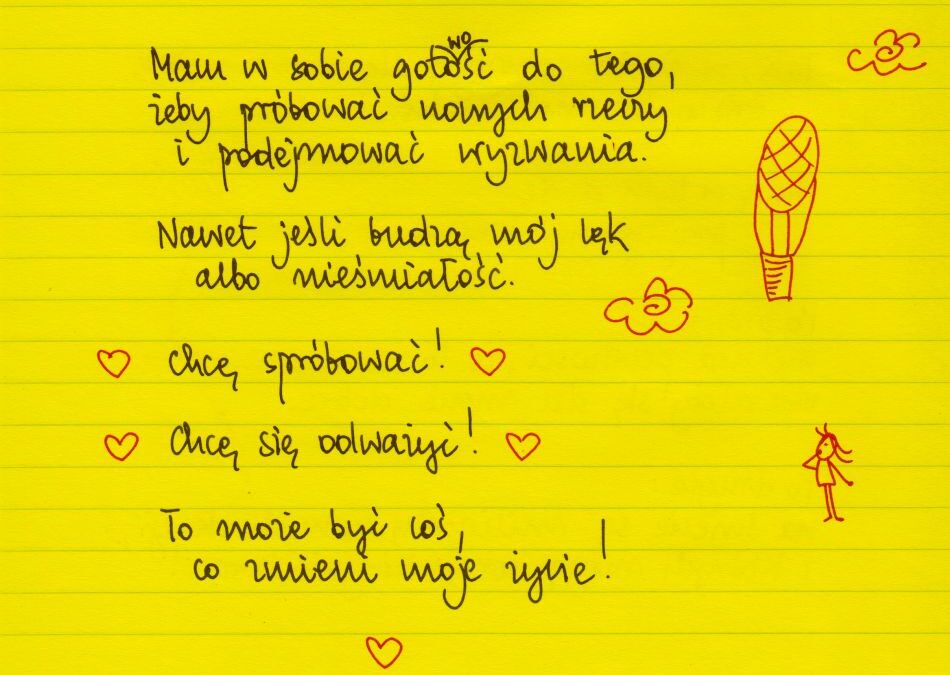 Mam w sobie gotowość do tego,
żeby próbować nowych rzeczy
i podejmować wyzwania.
Nawet jeśli budzą mój lęk
albo nieśmiałość.
Chcę spróbować!
Chcę się odważyć!
To może być coś,
co zmieni moje życie!